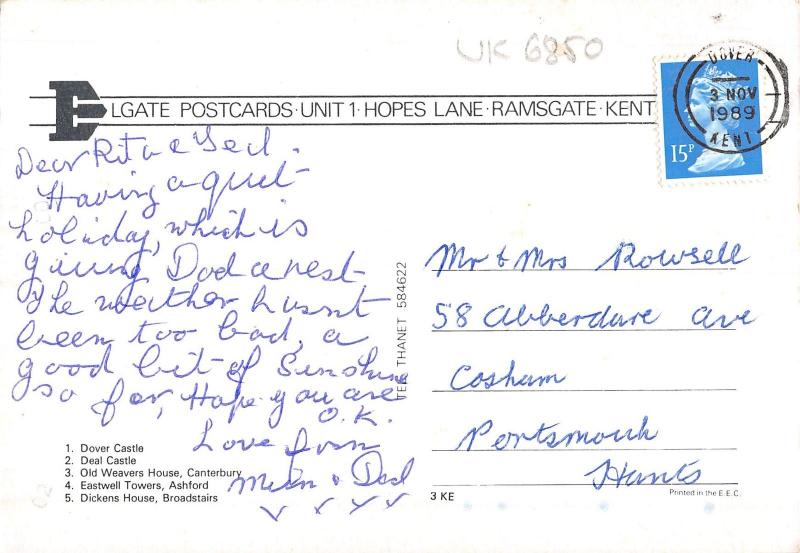 UK 6850
ELGATE POSTCARDS·UNIT 1·HOPES LANE·RAMSGATE·KENT
DOVER
3 NOV
1989
KENT
15P
Dear Rita & Ted.
Having a quiet
holiday, which is
giving Dad a rest
The weather hasnt
been too bad, a
good bit of Sunshine
so far, Hope you are
O.K.
Love from
Mum & Dad
TEL THANET 584622
Mr & Mrs Rowsell
58 Abberdare Ave
Cosham
Portsmouth
Hants
1. Dover Castle
2. Deal Castle
3. Old Weavers House, Canterbury
4. Eastwell Towers, Ashford
5. Dickens House, Broadstairs
3 KE
Printed in the E.E.C.